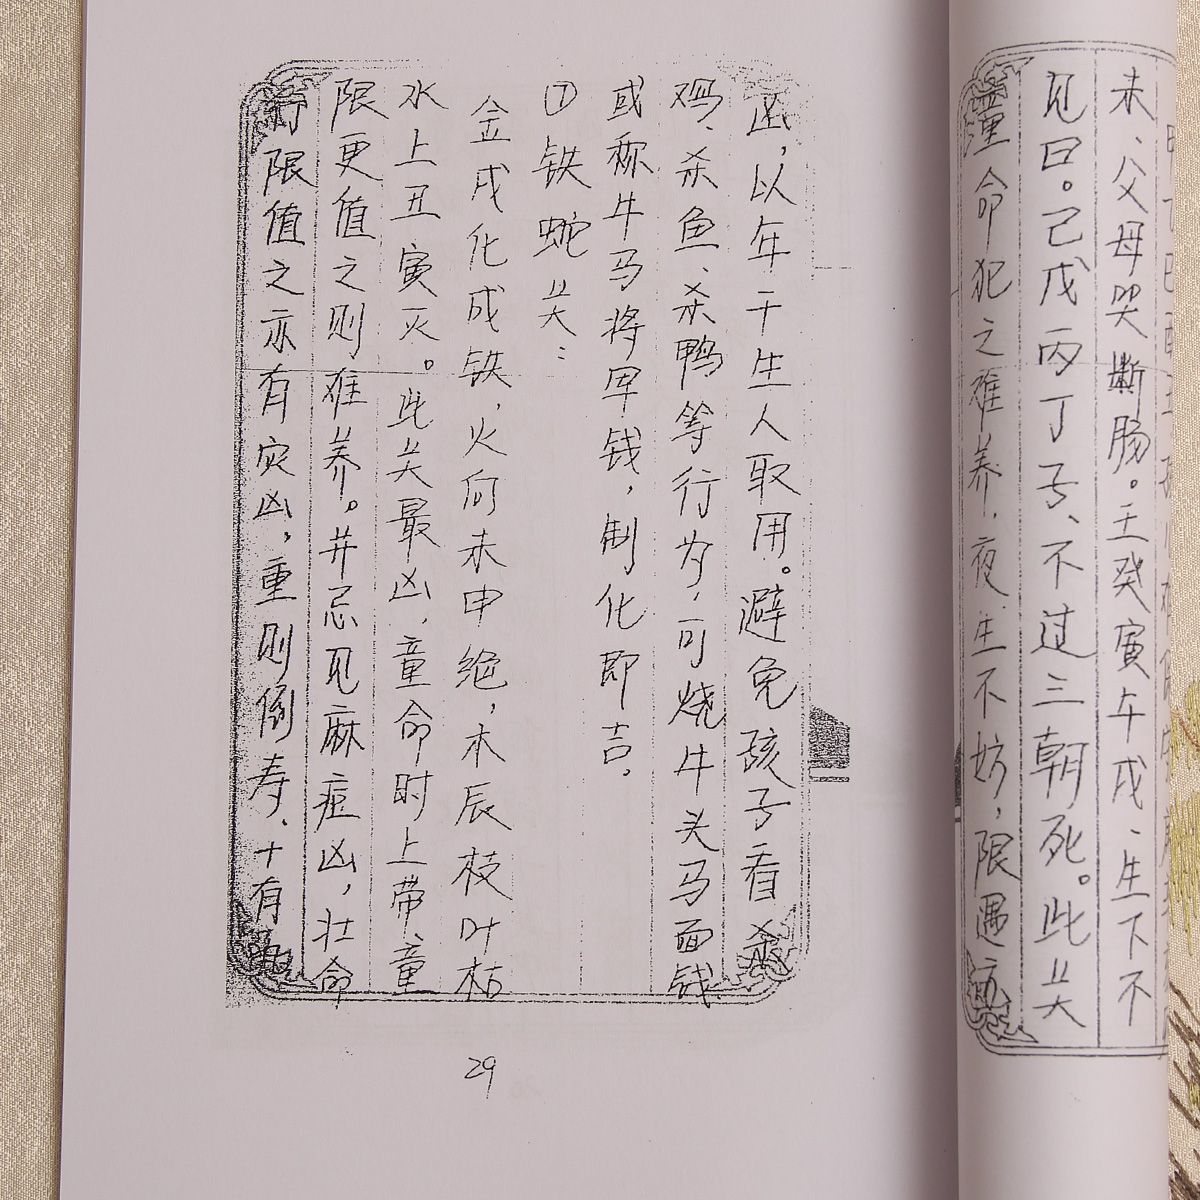 未、父母哭断肠。壬癸寅午戌、生下不
见日。己戊丙丁子、不过三朝死。此关
童命犯之难养，夜生不妨，限遇亦
凶，以年干生人取用。避免孩子看杀
鸡、杀鱼、杀鸭等行为，可烧牛头马面钱
或称牛马将军钱，制化即吉。
⑦铁蛇关：
金戌化成铁，火向未申绝，木辰枝叶枯
水上丑寅灭。此关最凶，童命时上带、童
限更值之则难养。并忌见麻痘凶，壮命
行限值之亦有灾凶，重则倒寿、十有
29